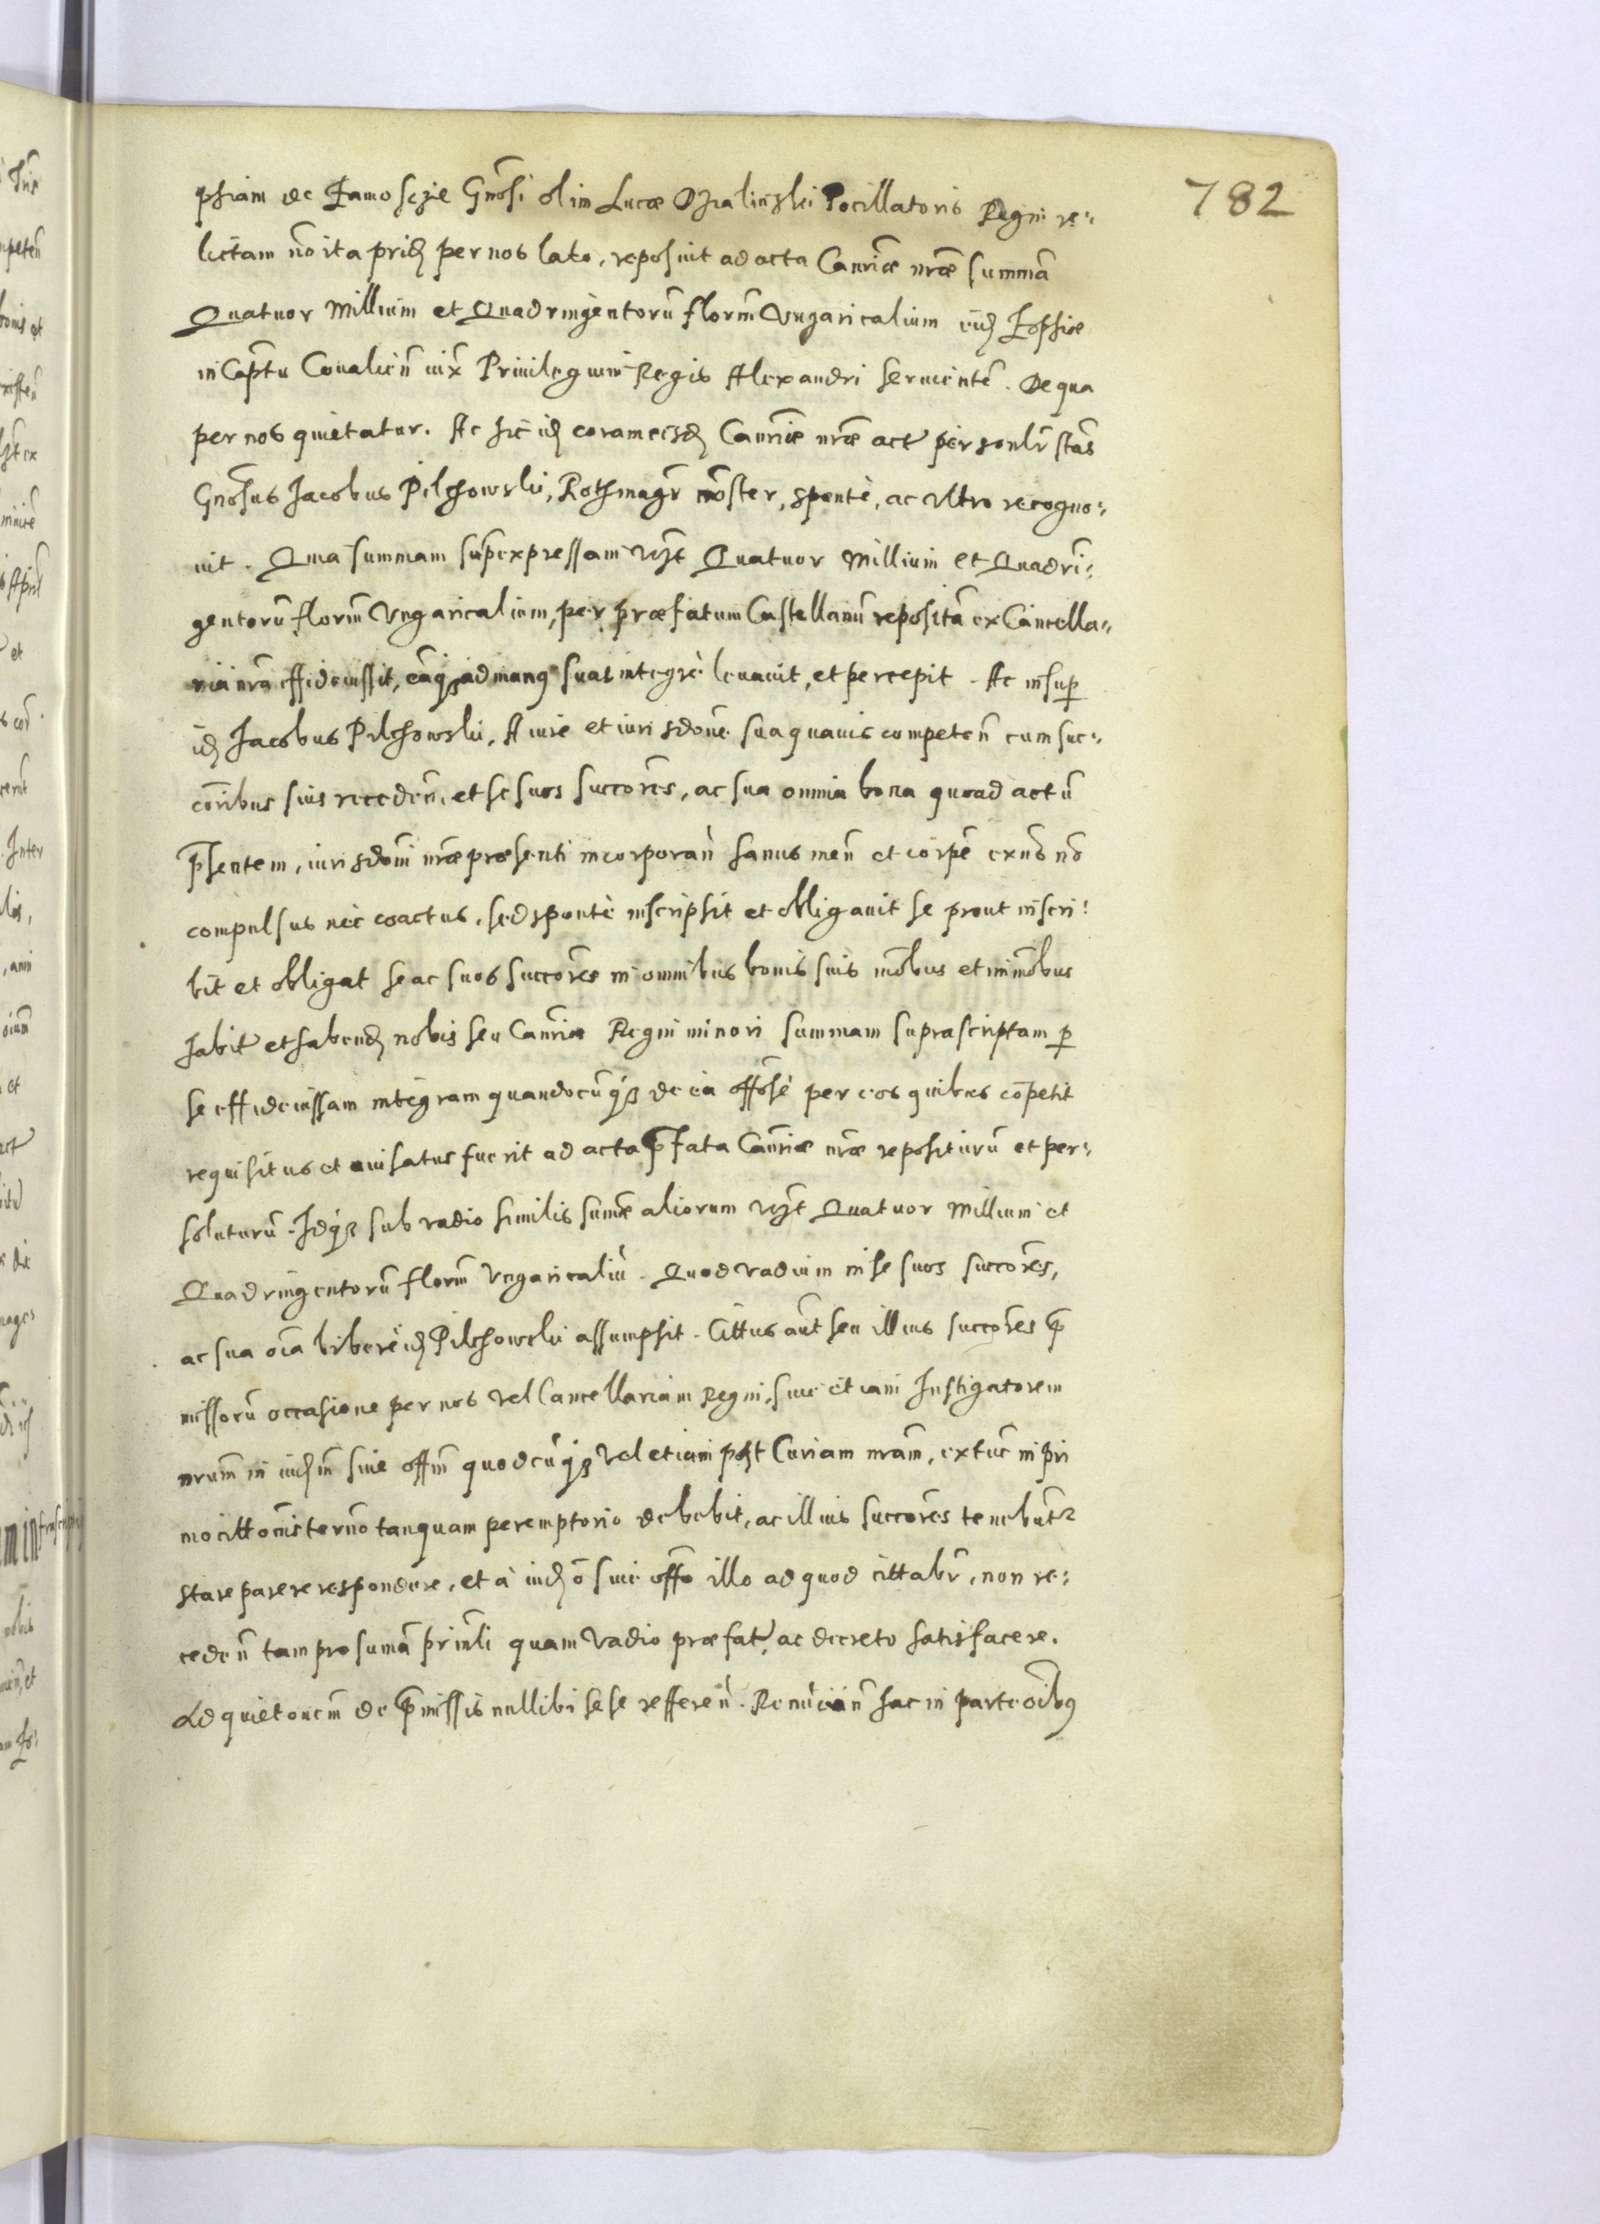 782
phiam de Zamosczie Gnosi olim Lucæ Dzialinski Pocillatoris Regni re-
lictam no ita prid per nos lato, reposuit ad acta Canriæ nræ summa
Quatuor Millium et Quadringentoru florm Vngaricalium eid Zophiæ
in Captu Coualien iux Priuilegium Regis Alexandri seruiente. De qua
per nos quietatur. Ac sic id coram eisd Canriæ nræ act personlr stas
Gnosus Jacobus Pilchowski, Rothmagr noster, sponte, ac vltro recogno-
uit. Quia summam supexpressam vzt Quatuor Millium et Quadri-
gentoru florm Vngaricalium, per præfatum Castellanu reposita ex Cancella-
ria nra effideiussit, eaqz ad manus suas integre leuauit, et percepit. Ac insup
id Jacobus Pilchowski, A iure et iurisdone sua quauis competen cum suc-
coribus suis receden, et se suos succores, ac sua omnia bona quoad actu
psentem, iurisdoni nræ præsenti incorporan sanus men et corpe exns no
compulsus nec coactus, sed sponte inscripsit et obligauit se prout inscri-
bit et obligat se ac suos succores in omnibus bonis suis mobus et immobus
habit et habend nobis seu Canriæ Regni minori summam suprascriptam p
se effideiussam integram quandocuqz de ea offose per eos quibus copetit
requisitus et auisatus fuerit ad acta pfata Canriæ nræ repositurn et per-
soluturu. Idqz sub vadio similis sumæ aliorum vzt Quatuor Millium et
Quadringentoru florm Vngaricaliu. Quod vadium in se suos succores,
ac sua oia libere id Pilchowski assumpsit. Cittus aut seu illius succores p
missoru occasione per nos vel Cancellariam Regni, siue etiam Instigatorem
nrum in iudm siue offm quodcuqz vel etiam post Curiam nram, extuc in pri
mo cittonis termo tanquam peremptorio debebit, ac illius succores tenebutr
stare parere respondere, et à iudo siue offo illo ad quod cittabr, non re-
ceden tam pro suma prinli quam vadio præfat, ac decreto satisfacere.
Ad quietonem de pmissis nullibi sese refferen. Renucian hac in parte oibus